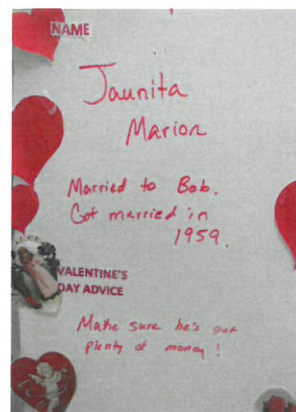 NAME
Jaunita
Marion
Married to Bob.
Got married in
1959.
VALENTINE'S
DAY ADVICE
Make sure he's got
plenty of money!